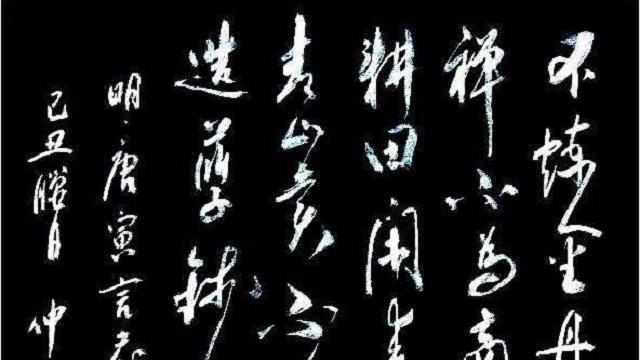 不炼金丹
禅不为商
耕田闲来
青山卖不
造孽钱
明唐寅言志
己丑腊月仲